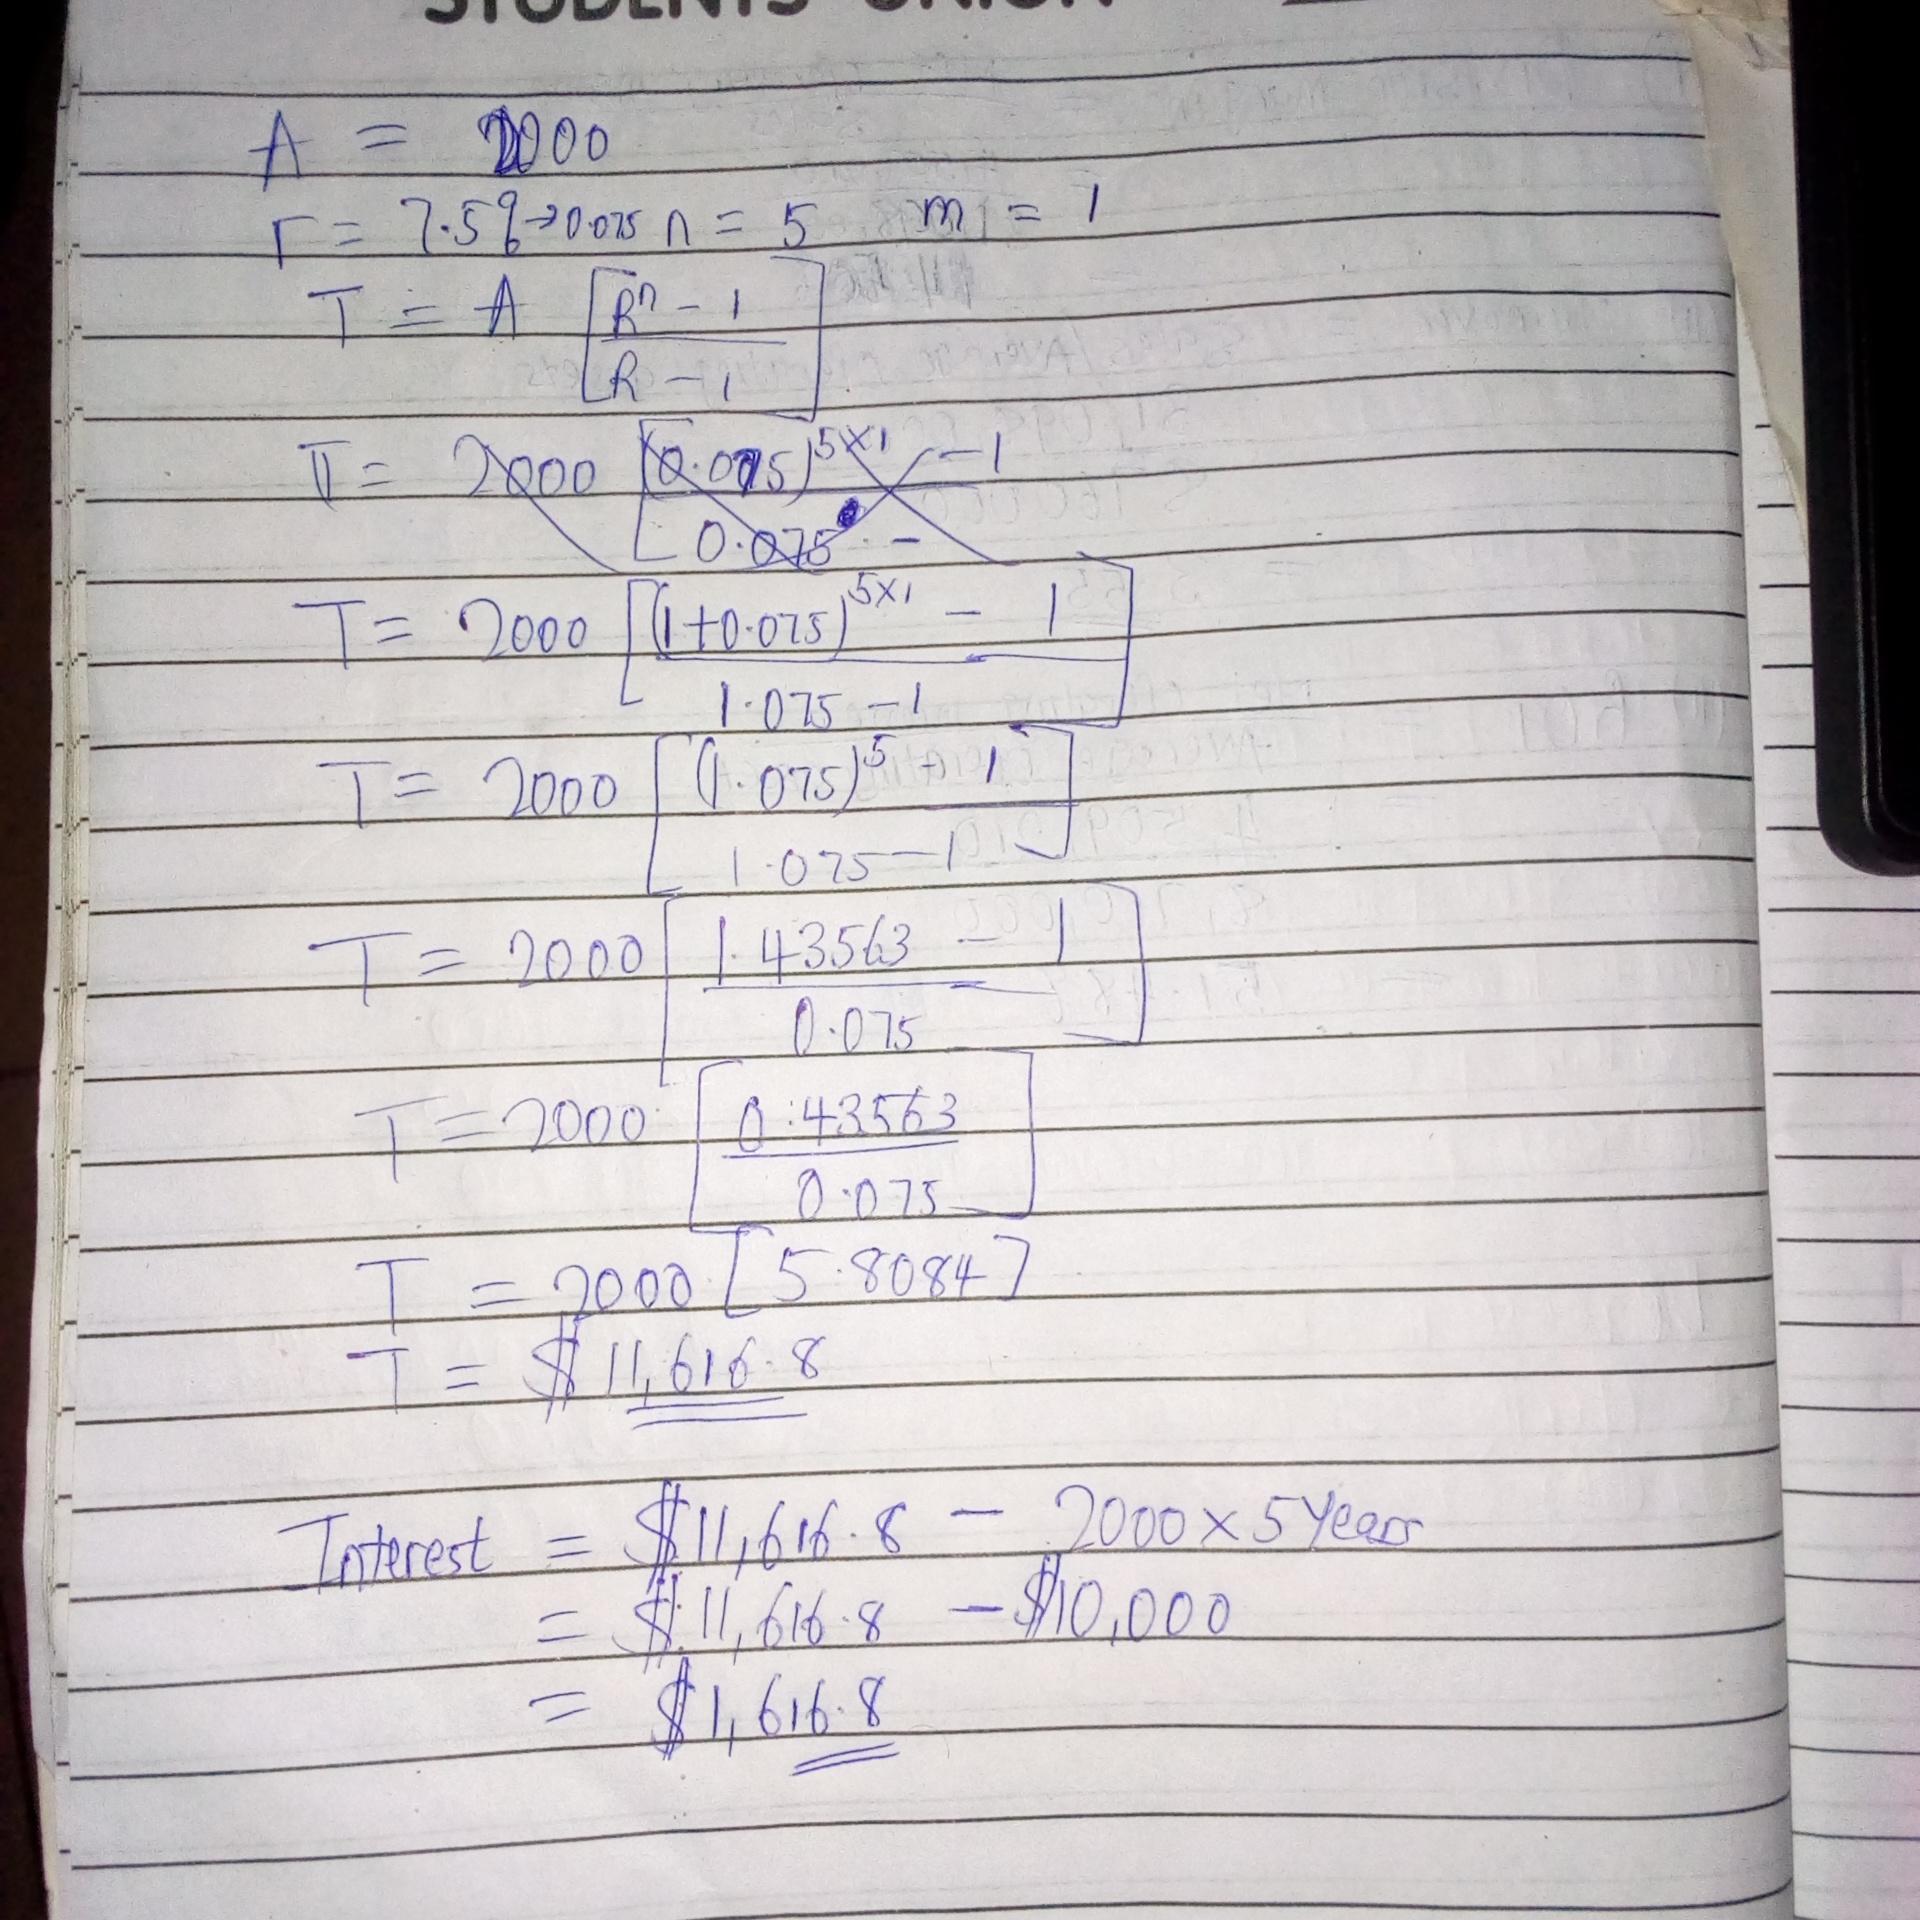 STUDENTS' UNION
A = 2000
r = 7.5% → 0.075 n = 5 m = 1
T = A [R^n - 1
R - 1]
T = 2000 [(0.075)^5×1 - 1
0.075 -
T = 2000 [(1+0.075)^5×1 - 1
1.075 - 1]
T = 2000 [(1.075)^5 - 1
1.075 - 1]
T = 2000 [1.43563 - 1
0.075]
T = 2000 [0.43563
0.075]
T = 2000 [5.8084]
T = $11,616.8
Interest = $11,616.8 - 2000 × 5 Years
= $11,616.8 - $10,000
= $1,616.8